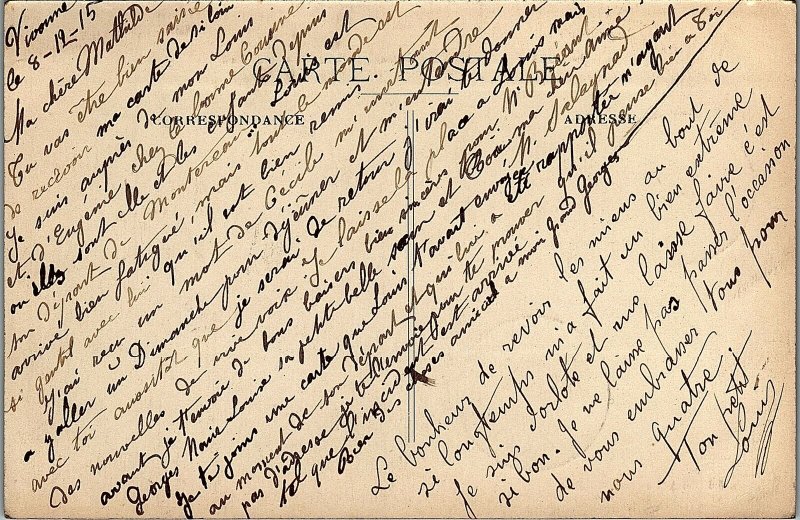 CARTE POSTALE
CORRESPONDANCE
ADRESSE
Vivonne
le 8-12-15
Ma chère Mathilde
Tu vas être bien saisie
de recevoir ma carte de si loin
Je suis auprès de mon Louis
et d'Eugénie chez la bonne Cousine
où sont elle et les depuis
son départ de Montereau Louis est
arrivé bien fatigué, mais tout le monde est
si gentil avec lui qu'il est bien remis
J'ai reçu un mot de Cécile m'invitant
à y aller un Dimanche pour déjeuner et m'entendre
avec toi aussitôt que je serai de retour j'irai te donner
des nouvelles de vive voix je laisse la place à Louis mais
avant je t'envoie de bons baisers bien sincères pour
Georges Marie Louise sa petite belle sœur et ma
Je te joins une carte que Louis t'avait envoyé
au moment de son départ et qui lui a été rapportée n'ayant
pas d'adresse je te l'envoie pour te prouver qu'il pense bien à toi
tel que l'incident est arrivé
Bien des choses amicales à mon grand Georges
Le bonheur de revoir les miens au bout de
si longtemps m'a fait un bien extrême
Je suis dorloté et me laisse faire c'est
si bon. Je ne laisse pas passer l'occasion
de vous embrasser tous pour
nous quatre
Ton petit
Louis